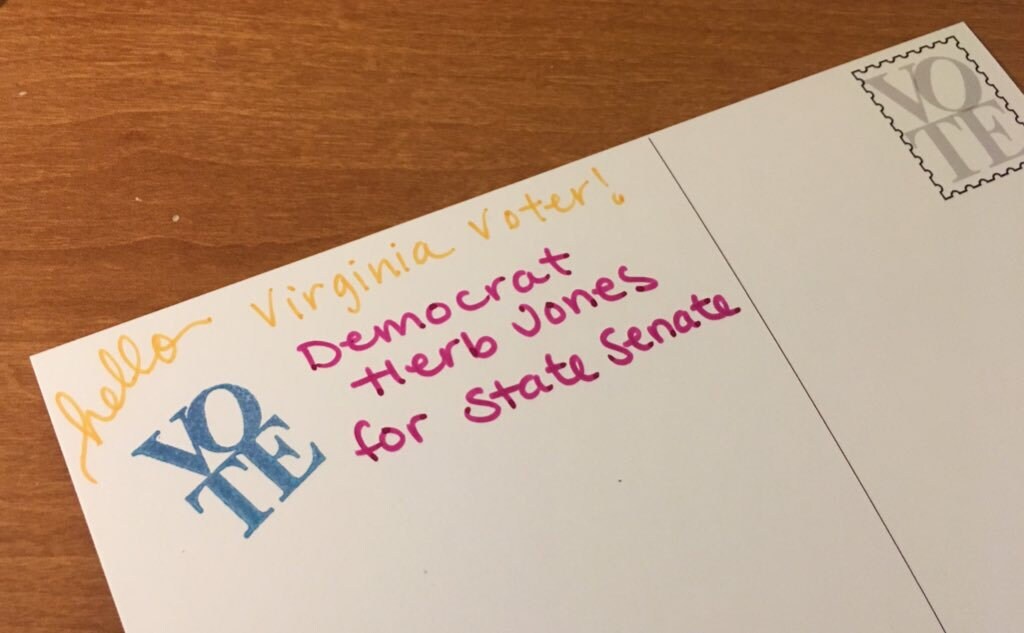 hello Virginia Voter!
Democrat
Herb Jones
for State Senate
VO
TE
VO
TE